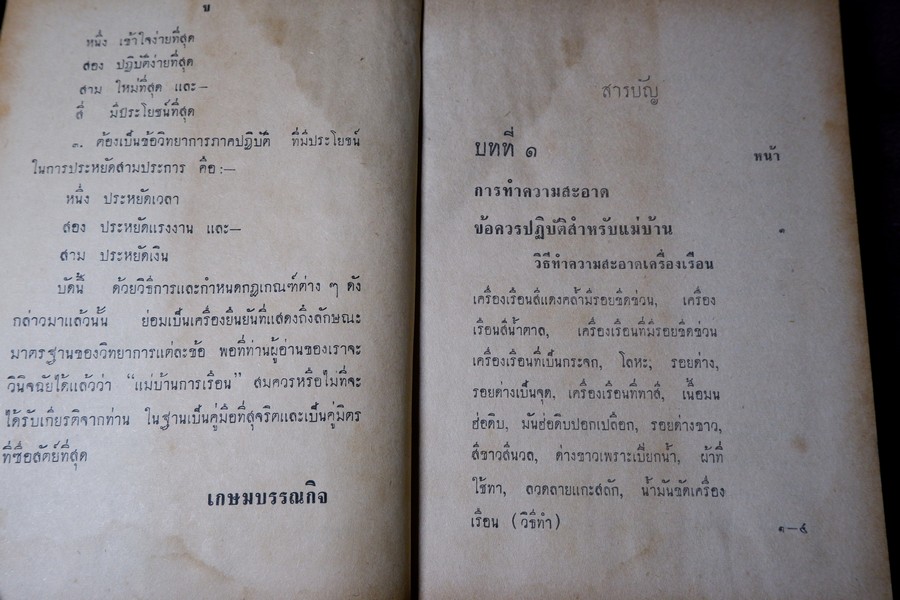 ข
หนึ่ง เข้าใจง่ายที่สุด
สอง ปฏิบัติง่ายที่สุด
สาม ใหม่ที่สุด และ—
สี่ มีประโยชน์ที่สุด
๓. ต้องเป็นข้อวิทยาการภาคปฏิบัติ ที่มีประโยชน์
ในการประหยัดสามประการ คือ:—
หนึ่ง ประหยัดเวลา
สอง ประหยัดแรงงาน และ—
สาม ประหยัดเงิน
บัดนี้ ด้วยวิธีการและกำหนดกฎเกณฑ์ต่าง ๆ ดัง
กล่าวมาแล้วนั้น ย่อมเป็นเครื่องยืนยันที่แสดงถึงลักษณะ
มาตรฐานของวิทยาการแต่ละข้อ พอที่ท่านผู้อ่านของเราจะ
วินิจฉัยได้แล้วว่า “แม่บ้านการเรือน” สมควรหรือไม่ที่จะ
ได้รับเกียรติจากท่าน ในฐานเป็นคู่มือที่สุจริตและเป็นคู่มิตร
ที่ซื่อสัตย์ที่สุด
เกษมบรรณกิจ
สารบัญ
บทที่ ๑
หน้า
การทำความสะอาด
ข้อควรปฏิบัติสำหรับแม่บ้าน ๑
วิธีทำความสะอาดเครื่องเรือน
เครื่องเรือนสีแดงคล้ำมีรอยขีดข่วน, เครื่อง
เรือนสีน้ำตาล, เครื่องเรือนที่มีรอยขีดข่วน
เครื่องเรือนที่เป็นกระจก, โลหะ, รอยด่าง,
รอยด่างเป็นจุด, เครื่องเรือนที่ทาสี, เนื้อมน
ฮ่อดิบ, มันฮ่อดิบปอกเปลือก, รอยด่างขาว,
สีขาวสีนวล, ด่างขาวเพราะเปียกน้ำ, ผ้าที่
ใช้ทา, ลวดลายแกะสลัก, น้ำมันขัดเครื่อง
เรือน (วิธีทำ) ๑—๕